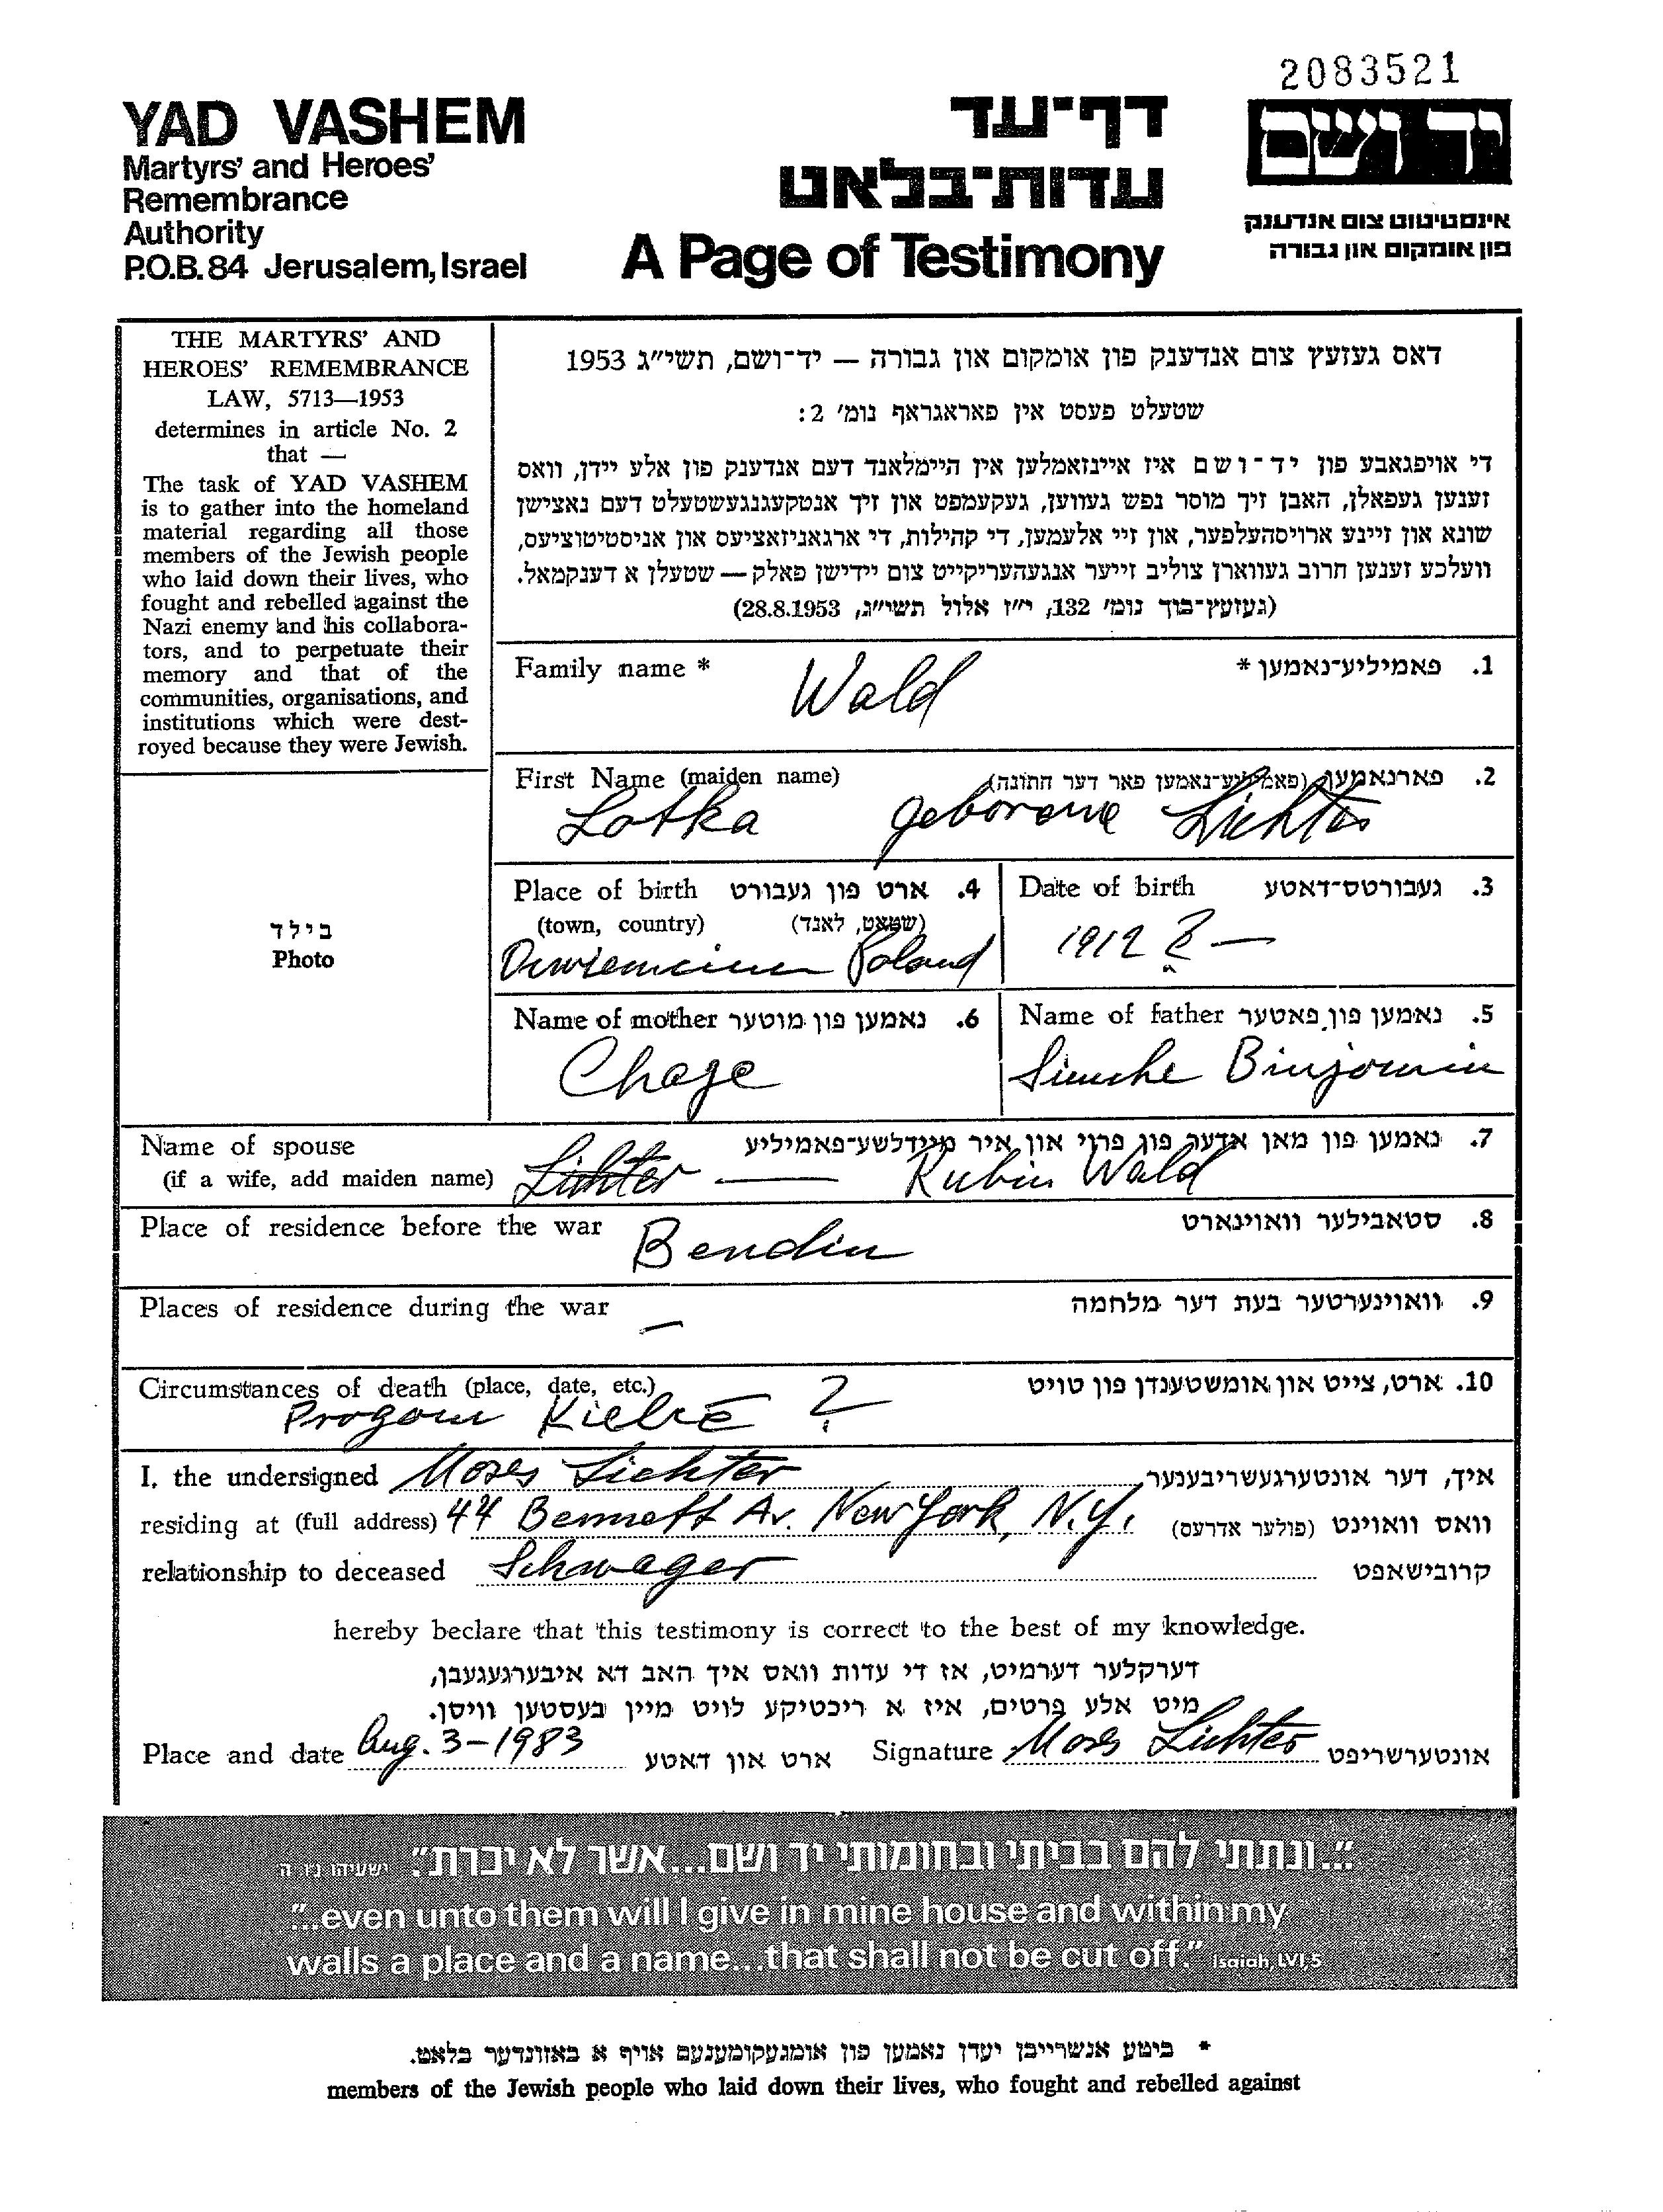 2083521
YAD VASHEM
Martyrs' and Heroes'
Remembrance
Authority
P.O.B. 84 Jerusalem, Israel
דף־עד
עדות־בלאט
A Page of Testimony
יד ושם
אינסטיטוט צום אנדענק
פון אומקום און גבורה
THE MARTYRS' AND
HEROES' REMEMBRANCE
LAW, 5713—1953
determines in article No. 2
that —
The task of YAD VASHEM
is to gather into the homeland
material regarding all those
members of the Jewish people
who laid down their lives, who
fought and rebelled against the
Nazi enemy and his collabora-
tors, and to perpetuate their
memory and that of the
communities, organisations, and
institutions which were dest-
royed because they were Jewish.
דאס געזעץ צום אנדענק פון אומקום און גבורה — יד־ושם, תשי״ג 1953
שטעלט פעסט אין פאראגראף נומ׳ 2:
די אויפגאבע פון יד־ושם איז איינזאמלען אין היימלאנד דעם אנדענק פון אלע יידן, וואס
זענען געפאלן, האבן זיך מוסר נפש געווען, געקעמפט און זיך אנטקעגנגעשטעלט דעם נאצישן
שונא און זיינע ארויסהעלפער, און זיי אלעמען, די קהילות, די ארגאניזאציעס און אניסטיטוציעס,
וועלכע זענען חרוב געווארן צוליב זייער אנגעהעריקייט צום יידישן פאלק — שטעלן א דענקמאל.
(געזעץ־בוך נומ׳ 132, י״ז אלול תשי״ג, 28.8.1953)
Family name * Wald 1. פאמיליע־נאמען *
First Name (maiden name) 2. פארנאמען (פאמיליע־נאמען פאר דער חתונה)
Lotka geborene Lichter
Place of birth 4. ארט פון געבורט
(town, country) (שטאט, לאנד)
Poland
Date of birth 3. געבורטס־דאטע
1912 ? —
בילד
Photo
Name of mother 6. נאמען פון מוטער
Chaje
Name of father 5. נאמען פון פאטער
Simche Binjomin
Name of spouse 7. נאמען פון מאן אדער פון פרוי און איר מיידלשע־פאמיליע
(if a wife, add maiden name) Lichter — Rubin Wald
Place of residence before the war Bendin 8. סטאבילער וואוינארט
Places of residence during the war — 9. וואוינערטער בעת דער מלחמה
Circumstances of death (place, date, etc.) 10. ארט, צייט און אומשטענדן פון טויט
Progom Kielce ?
I, the undersigned Moses Lichter איך, דער אונטערגעשריבענער
residing at (full address) 44 Bennett Av. New York, N.Y. וואס וואוינט (פולער אדרעס)
relationship to deceased Schwager קרובישאפט
hereby beclare that this testimony is correct to the best of my knowledge.
דערקלער דערמיט, אז די עדות וואס איך האב דא איבערגעגעבן,
מיט אלע פרטים, איז א ריכטיקע לויט מיין בעסטען וויסן.
Place and date Aug. 3-1983 ארט און דאטע Signature Moses Lichter אונטערשריפט
"...ונתתי להם בביתי ובחומותי יד ושם...אשר לא יכרת". ישעיהו נ״ו, ה
"...even unto them will I give in mine house and within my
walls a place and a name...that shall not be cut off." Isaiah, LVI, 5
* ביטע אנשרייבן יעדן נאמען פון אומגעקומענעם אויף א באזונדער בלאט.
members of the Jewish people who laid down their lives, who fought and rebelled against